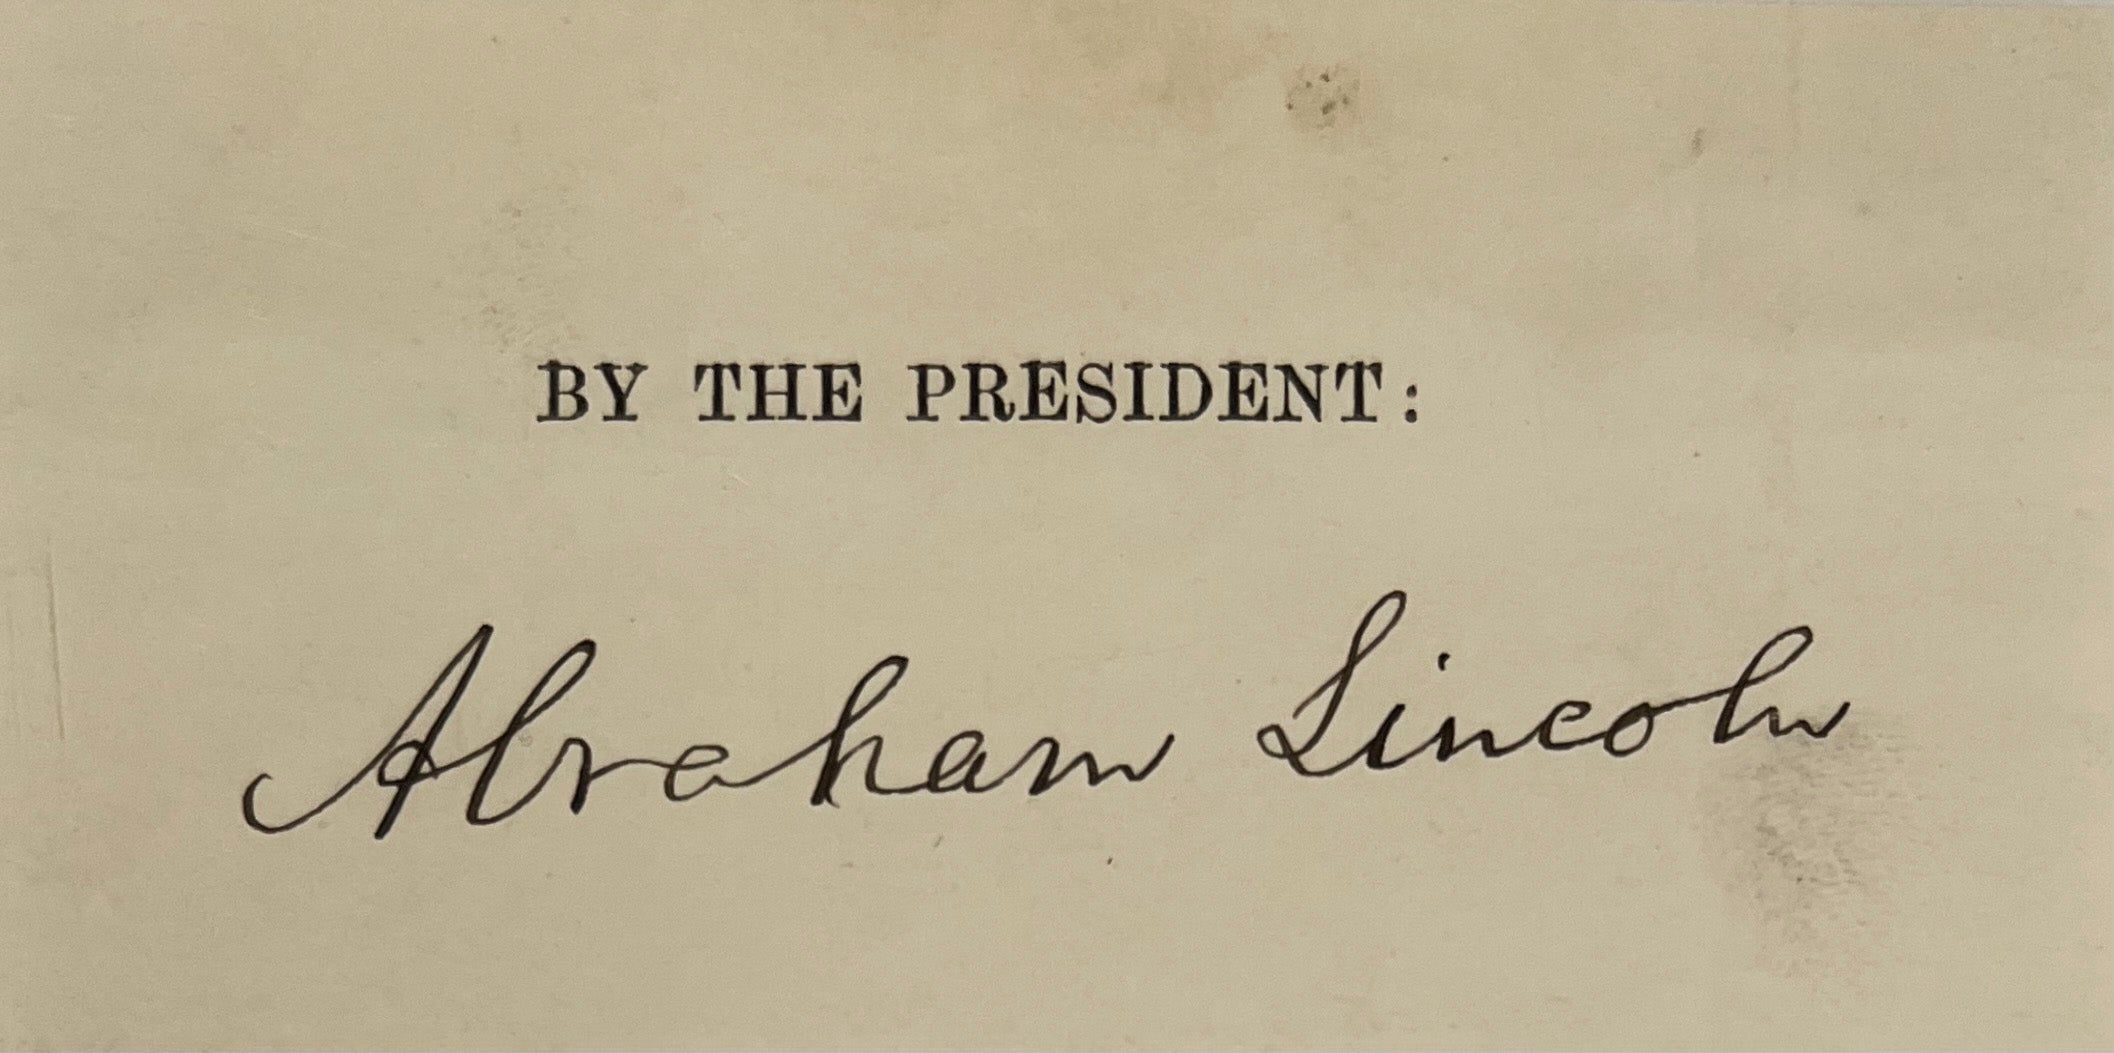 BY THE PRESIDENT:
Abraham Lincoln